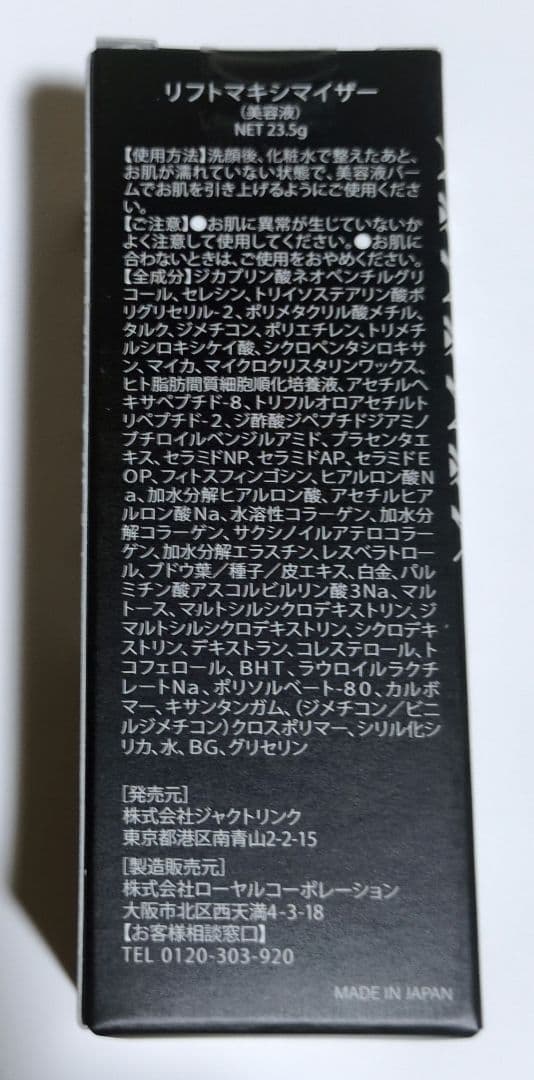 リフトマキシマイザー
(美容液)
NET 23.5g
【使用方法】洗顔後、化粧水で整えたあと、
お肌が濡れていない状態で、美容液バー
ムでお肌を引き上げるようにご使用くださ
い。
【ご注意】●お肌に異常が生じていないか
よく注意して使用してください。●お肌に
合わないときは、ご使用をおやめください。
【全成分】ジカプリン酸ネオペンチルグリ
コール、セレシン、トリイソステアリン酸ポ
リグリセリル-2、ポリメタクリル酸メチル、
タルク、ジメチコン、ポリエチレン、トリメチ
ルシロキシケイ酸、シクロペンタシロキサ
ン、マイカ、マイクロクリスタリンワックス、
ヒト脂肪間質細胞順化培養液、アセチルヘ
キサペプチド-8、トリフルオロアセチルト
リペプチド-2、ジ酢酸ジペプチドジアミノ
ブチロイルベンジルアミド、プラセンタエ
キス、セラミドNP、セラミドAP、セラミドE
OP、フィトスフィンゴシン、ヒアルロン酸N
a、加水分解ヒアルロン酸、アセチルヒア
ルロン酸Na、水溶性コラーゲン、加水分
解コラーゲン、サクシノイルアテロコラー
ゲン、加水分解エラスチン、レスベラトロー
ル、ブドウ葉／種子／皮エキス、白金、パル
ミチン酸アスコルビルリン酸3Na、マル
トース、マルトシルシクロデキストリン、ジ
マルトシルシクロデキストリン、シクロデキ
ストリン、デキストラン、コレステロール、ト
コフェロール、BHT、ラウロイルラクチ
レートNa、ポリソルベート-80、カルボ
マー、キサンタンガム、(ジメチコン／ビニ
ルジメチコン)クロスポリマー、シリル化シ
リカ、水、BG、グリセリン
[発売元]
株式会社ジャクトリンク
東京都港区南青山2-2-15
[製造販売元]
株式会社ローヤルコーポレーション
大阪市北区西天満4-3-18
【お客様相談窓口】
TEL 0120-303-920
MADE IN JAPAN